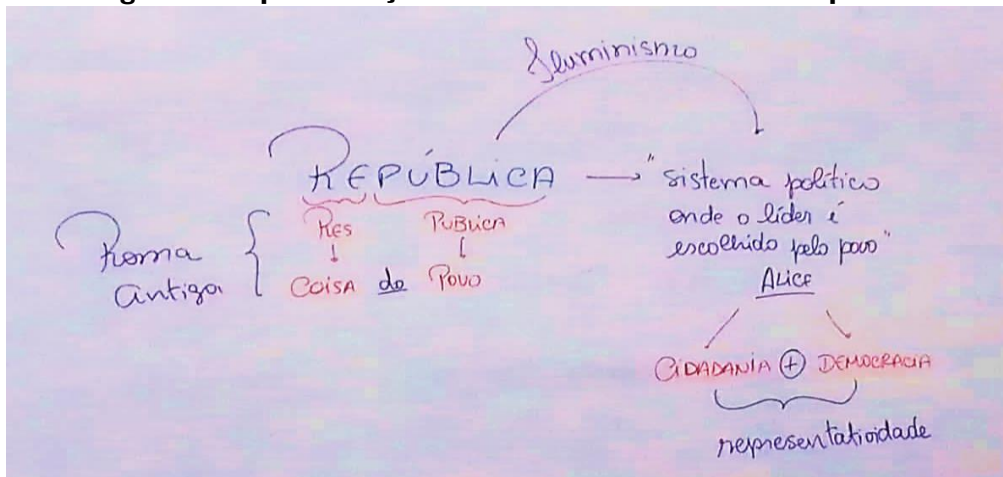 Iluminismo
REPÚBLICA → "sistema político
onde o líder é
escolhido pelo povo"
Alice
Roma
antiga
RES PUBLICA
↓
COISA do POVO
CIDADANIA + DEMOCRACIA
representatividade